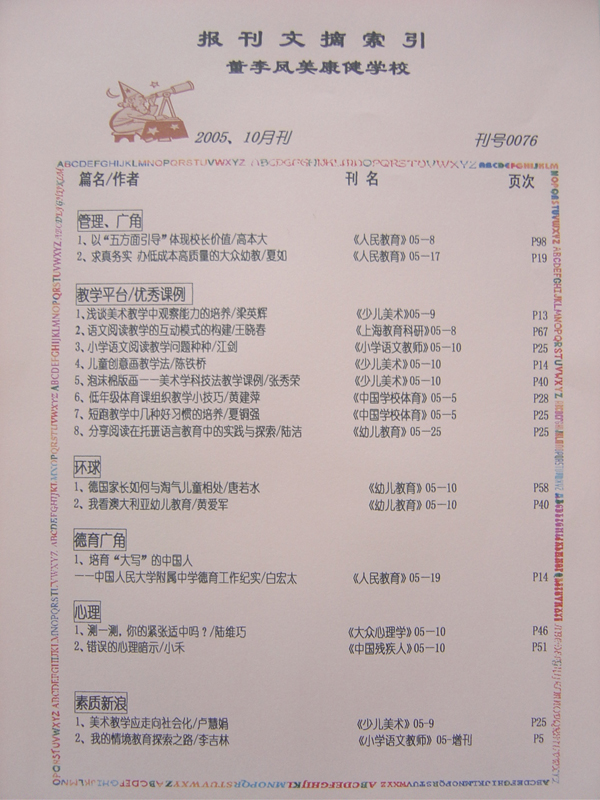 报刊文摘索引
董李凤美康健学校
2005、10月刊 刊号0076
ABCDEFGHIJKLMNOPQRSTUVWXYZ ABCDEFGHIJKLMNOPQRSTUVWXYZ ABCDEFGHIJKLM
篇名/作者 刊 名 页次
管理、广角
1、以“五方面引导”体现校长价值/高本大 《人民教育》05-8 P98
2、求真务实 办低成本高质量的大众幼教/夏如 《人民教育》05-17 P19
教学平台/优秀课例
1、浅谈美术教学中观察能力的培养/梁英辉 《少儿美术》05-9 P13
2、语文阅读教学的互动模式的构建/王晓春 《上海教育科研》05-8 P67
3、小学语文阅读教学问题种种/江剑 《小学语文教师》05-10 P25
4、儿童创意画教学法/陈铁桥 《少儿美术》05-10 P14
5、泡沫棉版画--美术学科技法教学课例/张秀荣 《少儿美术》05-10 P40
6、低年级体育课组织教学小技巧/黄建萍 《中国学校体育》05-5 P28
7、短跑教学中几种好习惯的培养/夏铜强 《中国学校体育》05-5 P25
8、分享阅读在托班语言教育中的实践与探索/陆洁 《幼儿教育》05-25 P25
环球
1、德国家长如何与淘气儿童相处/唐若水 《幼儿教育》05-10 P58
2、我看澳大利亚幼儿教育/黄爱军 《幼儿教育》05-10 P40
德育广角
1、培育“大写”的中国人
--中国人民大学附属中学德育工作纪实/白宏太 《人民教育》05-19 P14
心理
1、测一测，你的紧张适中吗？/陆维巧 《大众心理学》05-10 P46
2、错误的心理暗示/小禾 《中国残疾人》05-10 P51
素质新浪
1、美术教学应走向社会化/卢慧娟 《少儿美术》05-9 P25
2、我的情境教育探索之路/李吉林 《小学语文教师》05-增刊 P5